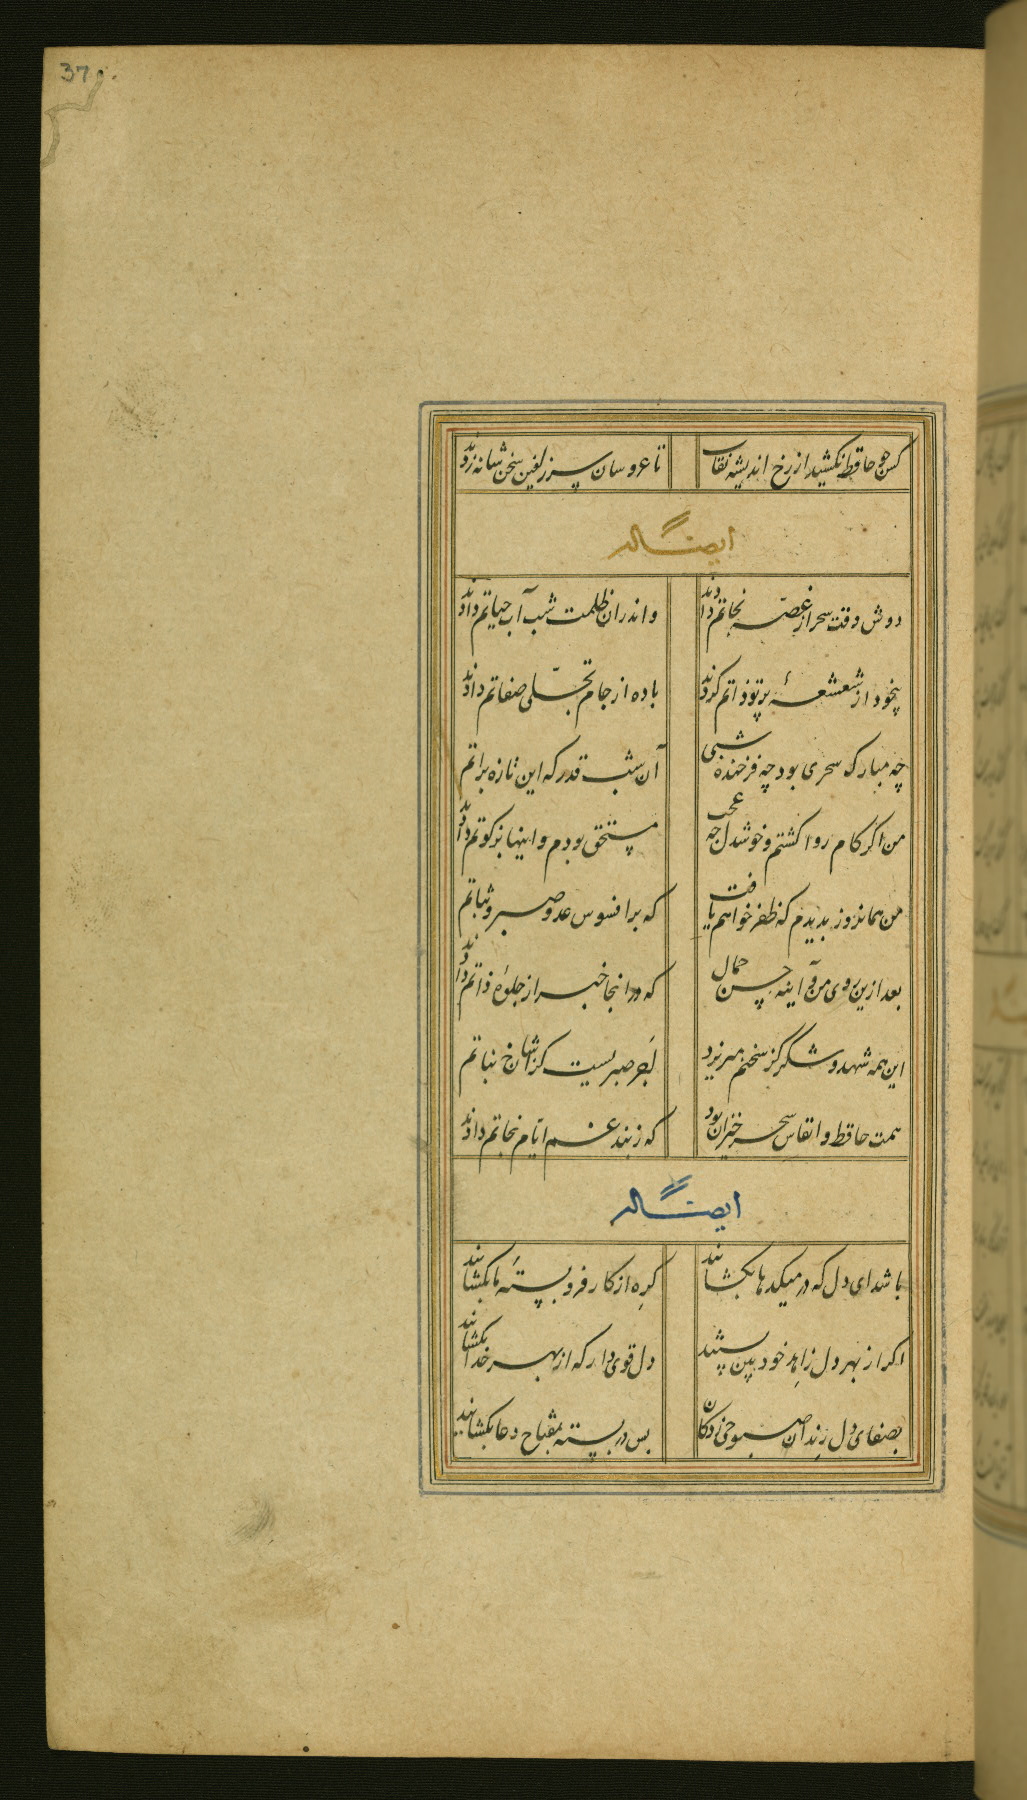 37
کس چو حافظ نکشید از رخ اندیشه نقاب تا عروسان سر زلفین سخن شانه زدند
ایضاً له
دوش وقت سحر از غصّه نجاتم دادند واندران ظلمت شب آب حیاتم دادند
بیخود از شعشعهٔ پرتو ذاتم کردند باده از جام تجلّی صفاتم دادند
چه مبارک سحری بود چه فرخنده شبی آن شب قدر که این تازه براتم
من اکر کام روا کشتم و خوشدل چه عجب مستحق بودم و اینها بزکوتم دادند
من همانروز بدیدم که ظفر خواهم یافت که بر افسوس عدو صبر و ثباتم
بعد ازین روی من و آینهٔ حسن جمال که در انجا خبر از جلوهٔ ذاتم دادند
این همه شهد و شکر کز سخنم میریزد اجر صبریست کزان شاخ نباتم
همت حافظ و انفاس سحر خیزان بود که ز بند غم ایّام نجاتم دادند
ایضاً له
باشد ای دل که در میکدها بکشایند کره از کار فروبستهٔ ما بکشایند
اکر از بهر دل زاهد خود بین بستند دل قوی دار که از بهر خدا بکشایند
بصفای دل رندان صبوحی زدکان بس در بسته بمفتاح دعا بکشایند